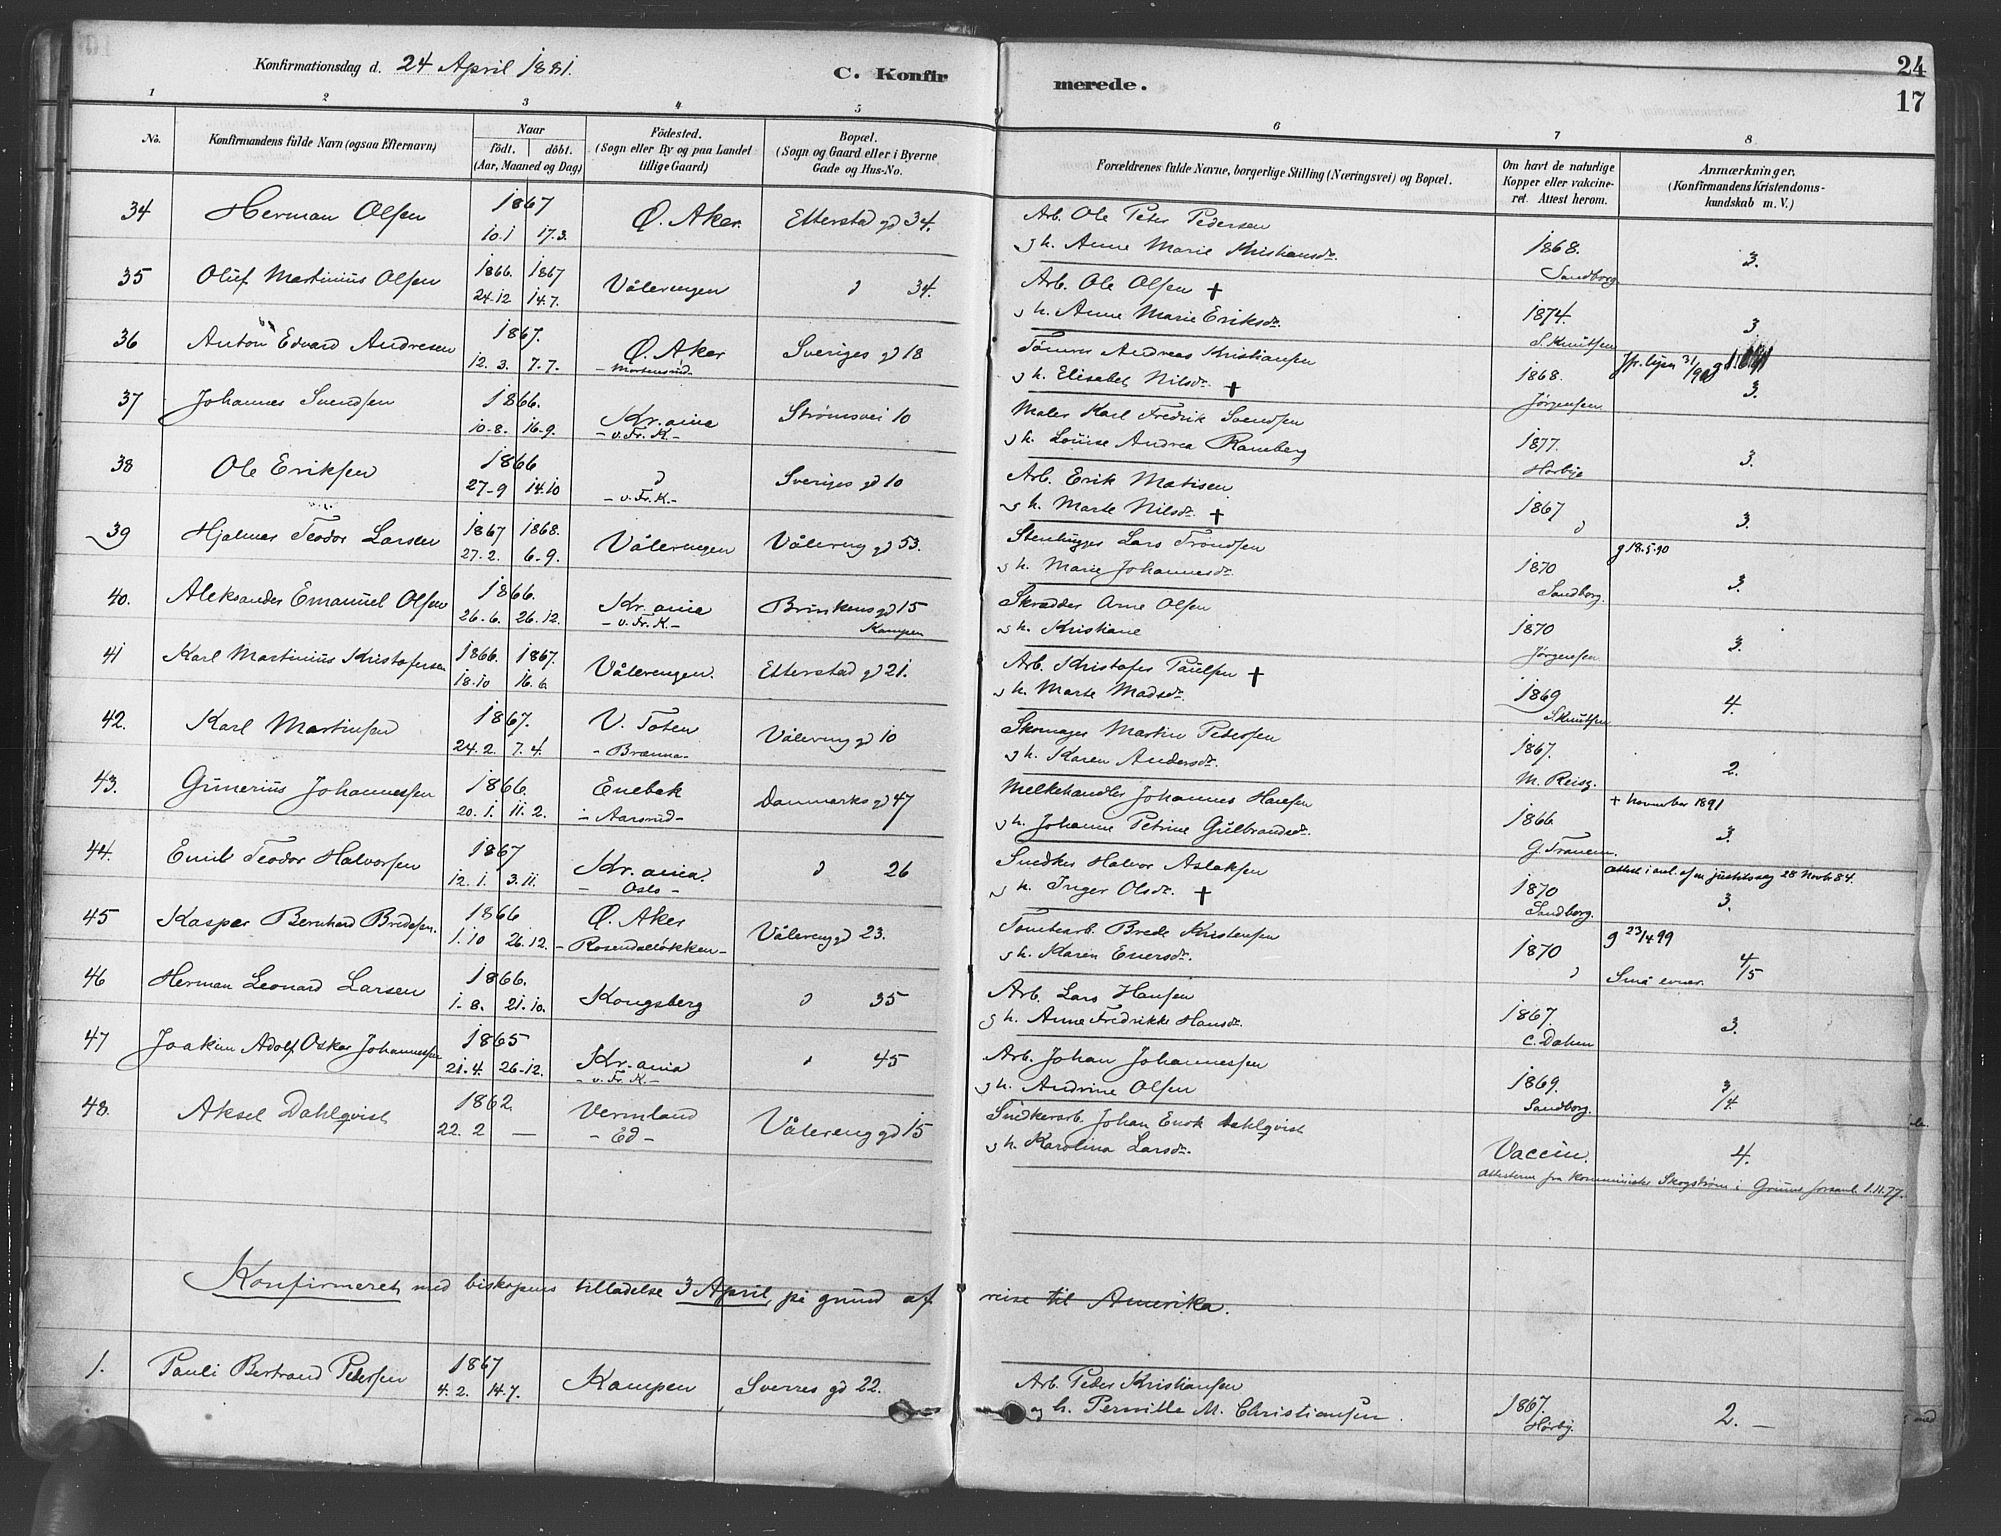 24
17
Konfirmationsdag d. 24 April 1881.
C. Konfirmerede.
1 2 3 4 5 6 7 8
No.
Konfirmandens fulde Navn (ogsaa Efternavn)
Naar
født. døbt.
(Aar, Maaned og Dag)
Fødested.
(Sogn eller By og paa Landet
tillige Gaard)
Bopæl.
(Sogn og Gaard eller i Byerne
Gade og Hus-No.
Forældrenes fulde Navne, borgerlige Stilling (Næringsvei) og Bopæl.
Om havt de naturlige
Kopper eller vakcine-
ret. Attest herom.
Anmærkninger.
(Konfirmandens Kristendoms-
kundskab m. V.)
34 Herman Olsen 1867 10.1 17.3. Ø. Aker. Etterstad gd 34. Arb. Ole Peter Pedersen
og h. Anne Marie Kristiansdr. 1868. Sandborg 3.
35 Oluf Martinius Olsen 1866. 24.12 1867 14.7. Vålerengen d 34. Arb. Ole Olsen †
og h. Anne Marie Eriksdr. 1874. S. Knutsen 3.
36 Anton Edvard Andresen 1867. 12.3. 7.7. Ø. Aker - Mortensrud - Sveriges gd 18 Tømrer Andreas Kristiansen
og h. Elisabet Nilsdr. † 1868. Jørgensen 3.
37 Johannes Svendsen 1866. 10-8. 16-9. Kr.ania - v. Fr. K - Strømsvei 10 Maler Karl Fredrik Svendsen
og h. Louise Andrea Raneberg 1877. Hørbye 3.
38 Ole Eriksen 1866 27-9 14.10 d - v. Fr. K. - Sveriges gd 10 Arb. Erik Matisen
og h. Marte Nilsdr. † 1867 d 3.
39 Hjalmar Teodor Larsen 1867 27.2. 1868. 6-9. Vålerengen Vålereng gd 53. Stenhugger Lars Trondsen
og h. Marie Johannesdr. 1870 Sandborg. g 18.5.90 3.
40. Aleksander Emanuel Olsen 1866. 26.6. 26.12. Kr.ania - v. Fr. K. - Brinkens gd 15 Kampen Skrædder Arne Olsen
og h. Kristiane 1870 Jørgensen 3.
41 Karl Martinius Kristofersen 1866. 18.10 1867. 16.6. Vålerengen. Etterstad gd 21. Arb. Kristofer Paulsen †
og h. Marte Madsdr. 1869 S. Knutsen 4.
42. Karl Martinsen 1867. 24.2. 7.4. V. Toten - Brænna - Vålereng gd 10 Skomager Martin Pedersen
og h. Karen Andersdr. 1867. M. Reisz. 2.
43. Gunerius Johannessen 1866. 20.1. 11.2. Enebak - Aarsrud - Danmarks gd 47 Melkehandler Johannes Hansen
og h. Johanne Petrine Gulbrandsdr. 1866 † november 1891 3.
44. Emil Teodor Halvorsen 1867 12.1. 3.11. Kr.ania. - Oslo - d 26 Snedker Halvor Aslaksen
og h. Inger Olsdr. † 1870 Sandborg. Attest i anl. af en justitssag 28 Novbr 84. 3.
45 Kasper Bernhard Bredesen. 1866 1.10 26.12. Ø. Aker - Rosendalløkken - Vålereng gd 23. Tomtearb. Brede Kristensen
og h. Karen Eversdr. 1870 d g 23/4 99 4/5 Små evner.
46 Herman Leonard Larsen 1866. 1.8. 21.10. Kongsberg d 35 Arb. Lars Hansen
og h. Anne Fredrikke Hansdr. 1867. C. Dahm 3.
47 Joakim Adolf Oskar Johannessen 1865 21.4. 26-12. Kr.ania - v. Fr. K. - d 45 Arb. Johan Johannessen
og h. Andrine Olsen 1869. Sandborg. 3/4.
48. Aksel Dahlqvist 1862. 22.2 — Vermland - Ed - Vålereng gd 15 Snedkerarb. Johan Enok Dahlqvist
og h. Karolina Larsdr. Vaccin. 4.
Attesterne fra Kommunister Skogstrøm i Grums forsaml. 1.11.77.
Konfirmeret med biskopens tilladelse 3 April, på grund af reise til Amerika.
1. Pauli Bertrand Pedersen 1867 4.2. 14.7. Kampen Sverres gd 22. Arb. Peder Kristiansen
og h. Pernille M. Christiansen. 1867. Hørby. 2. —